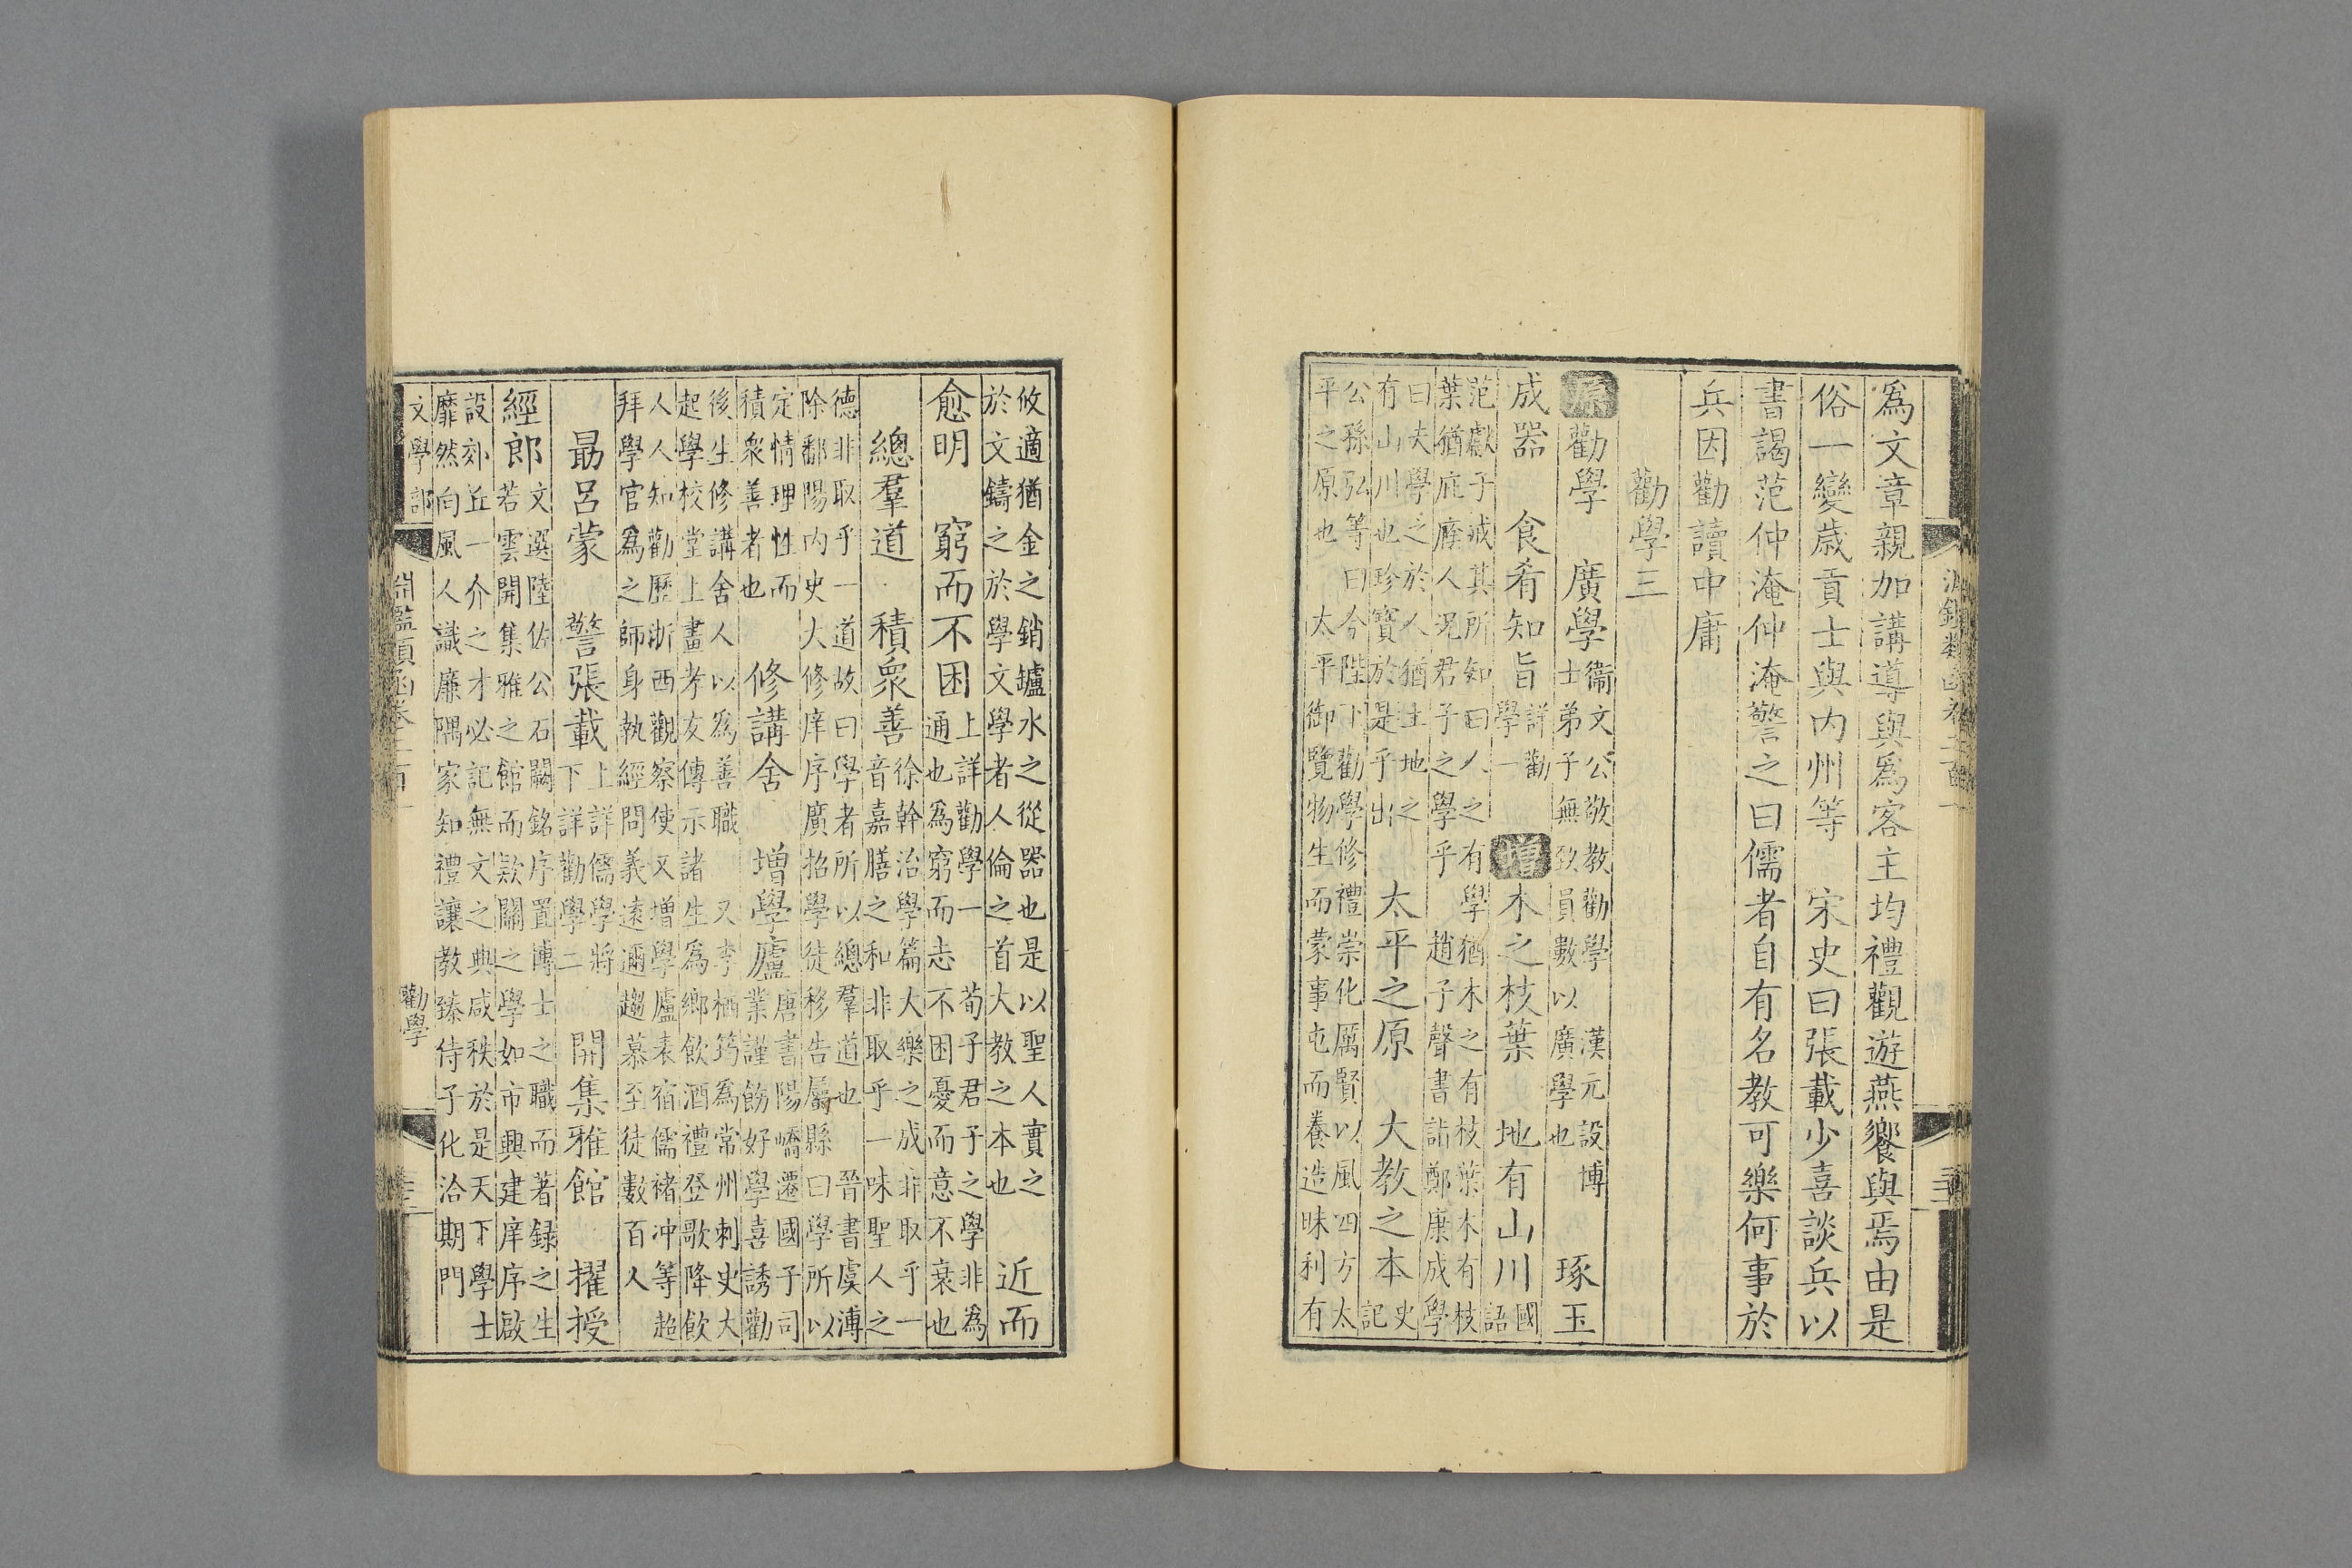 爲文章親加講導與爲客主均禮觀遊燕饗與焉由是
俗一變歲貢士與内州等 宋史曰張載少喜談兵以
書謁范仲淹仲淹警之曰儒者自有名教可樂何事於
兵因勸讀中庸
勸學三
原勸學 廣學衞文公敬教勸學 漢元設博士弟子無致員數以廣學也 琢玉
成器 食肴知旨詳勸學一 增木之枝葉 地有山川國語
范獻子戒其所知曰人之有學猶木之有枝葉木有枝
葉猶庇廕人况君子之學乎 趙子聲書詁鄭康成學
曰夫學之於人猶土地之有山川也珍寶於是乎出 太平之原 大教之本史記
公孫弘等曰今陛下勸學修禮崇化厲賢以風四方太
平之原也 太平御覽物生而蒙事屯而養造昧利有
攸適猶金之銷鑪水之從器也是以聖人實之
於文鑄之於學文學者人倫之首大教之本也 近而
愈明 窮而不困上詳勸學一 荀子君子之學非爲
通也爲窮而不困憂而意不衰也
總羣道 積衆善徐幹治學篇大樂之成非取乎一
音嘉膳之和非取乎一味聖人之
德非取乎一道故曰學者所以總羣道也 晉書虞溥
除鄱陽内史大修庠序廣招學徒移告屬縣曰學所以
定情理性而積衆善者也 修講舍 增學廬唐書陽嶠遷國子司業謹飭好學喜誘勸
後生修講舍人以爲善職 又李栖筠爲常州刺史大
起學校堂上畫孝友傳示諸生爲鄉飲酒禮登歌降飲
人人知勸歷浙西觀察使又增學廬表宿儒褚冲等超
拜學官爲之師身執經問義遠邇趨慕至徒數百人
勗呂蒙 警張載上詳儒學將下詳勸學二 開集雅館 擢授
經郎文選陸佐公石闕銘序置博士之職而著録之生
若雲開集雅之館而欵關之學如市興建庠序啟
設郊丘一介之才必記無文之典咸秩於是天下學士
靡然向風人識廉隅家知禮讓教臻侍子化洽期門
文學部
淵鑑類函卷二百一
勸學